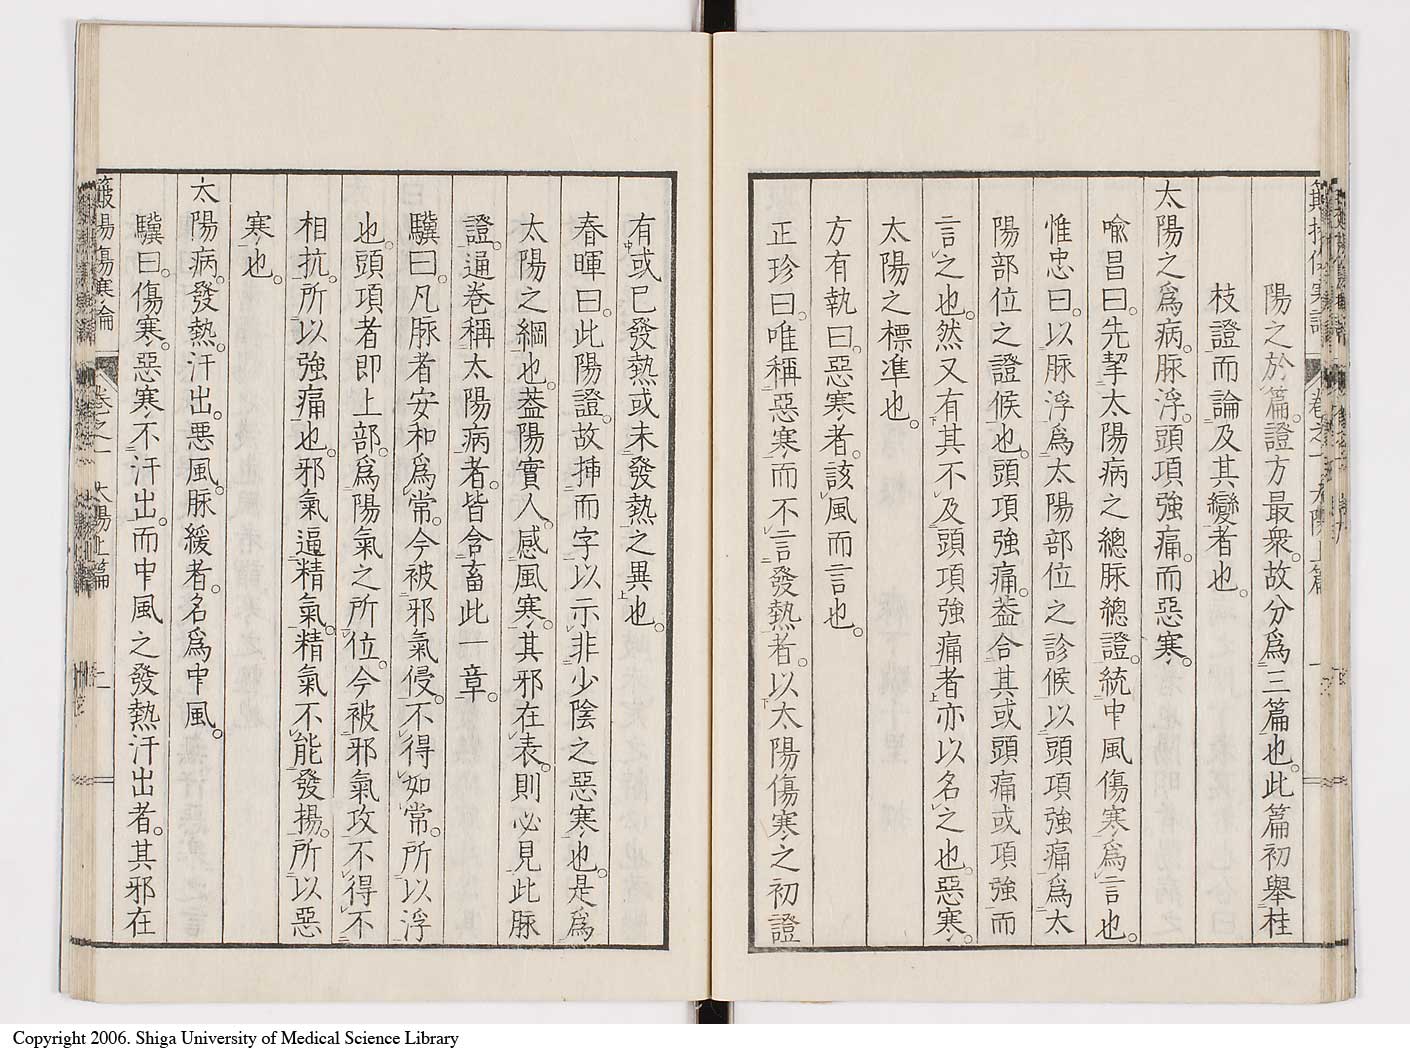 陽之於篇。證方最衆。故分爲三篇也。此篇初舉桂
枝證而論及其變者也。
太陽之爲病。脉浮。頭項強痛。而惡寒。
喩昌曰。先挈太陽病之總脉總證。統中風傷寒爲言也。
惟忠曰。以脉浮爲太陽部位之診候以頭項強痛爲太
陽部位之證候也。頭項強痛。葢合其或頭痛或項強而
言之也。然又有其不及頭項強痛者亦以名之也。惡寒。
太陽之標準也。
方有執曰。惡寒者。該風而言也。
正珍曰。唯稱惡寒而不言發熱者。以太陽傷寒之初證
有或已發熱或未發熱之異也。
春暉曰。此陽證。故揷而字以示非少陰之惡寒也。是爲
太陽之綱也。葢陽實人。感風寒。其邪在表。則必見此脉
證。通卷稱太陽病者。皆含畜此一章。
驥曰。凡脈者安和爲常。今被邪氣侵。不得如常。所以浮
也。頭項者即上部。爲陽氣之所位。今被邪氣攻不得不
相抗。所以強痛也。邪氣逼精氣。精氣不能發揚。所以惡
寒也。
太陽病。發熱。汗出。惡風。脉緩者。名爲中風。
驥曰。傷寒。惡寒不汗出。而中風之發熱汗出者。其邪在
傷寒論 卷之一 太陽上篇 二
Copyright 2006. Shiga University of Medical Science Library